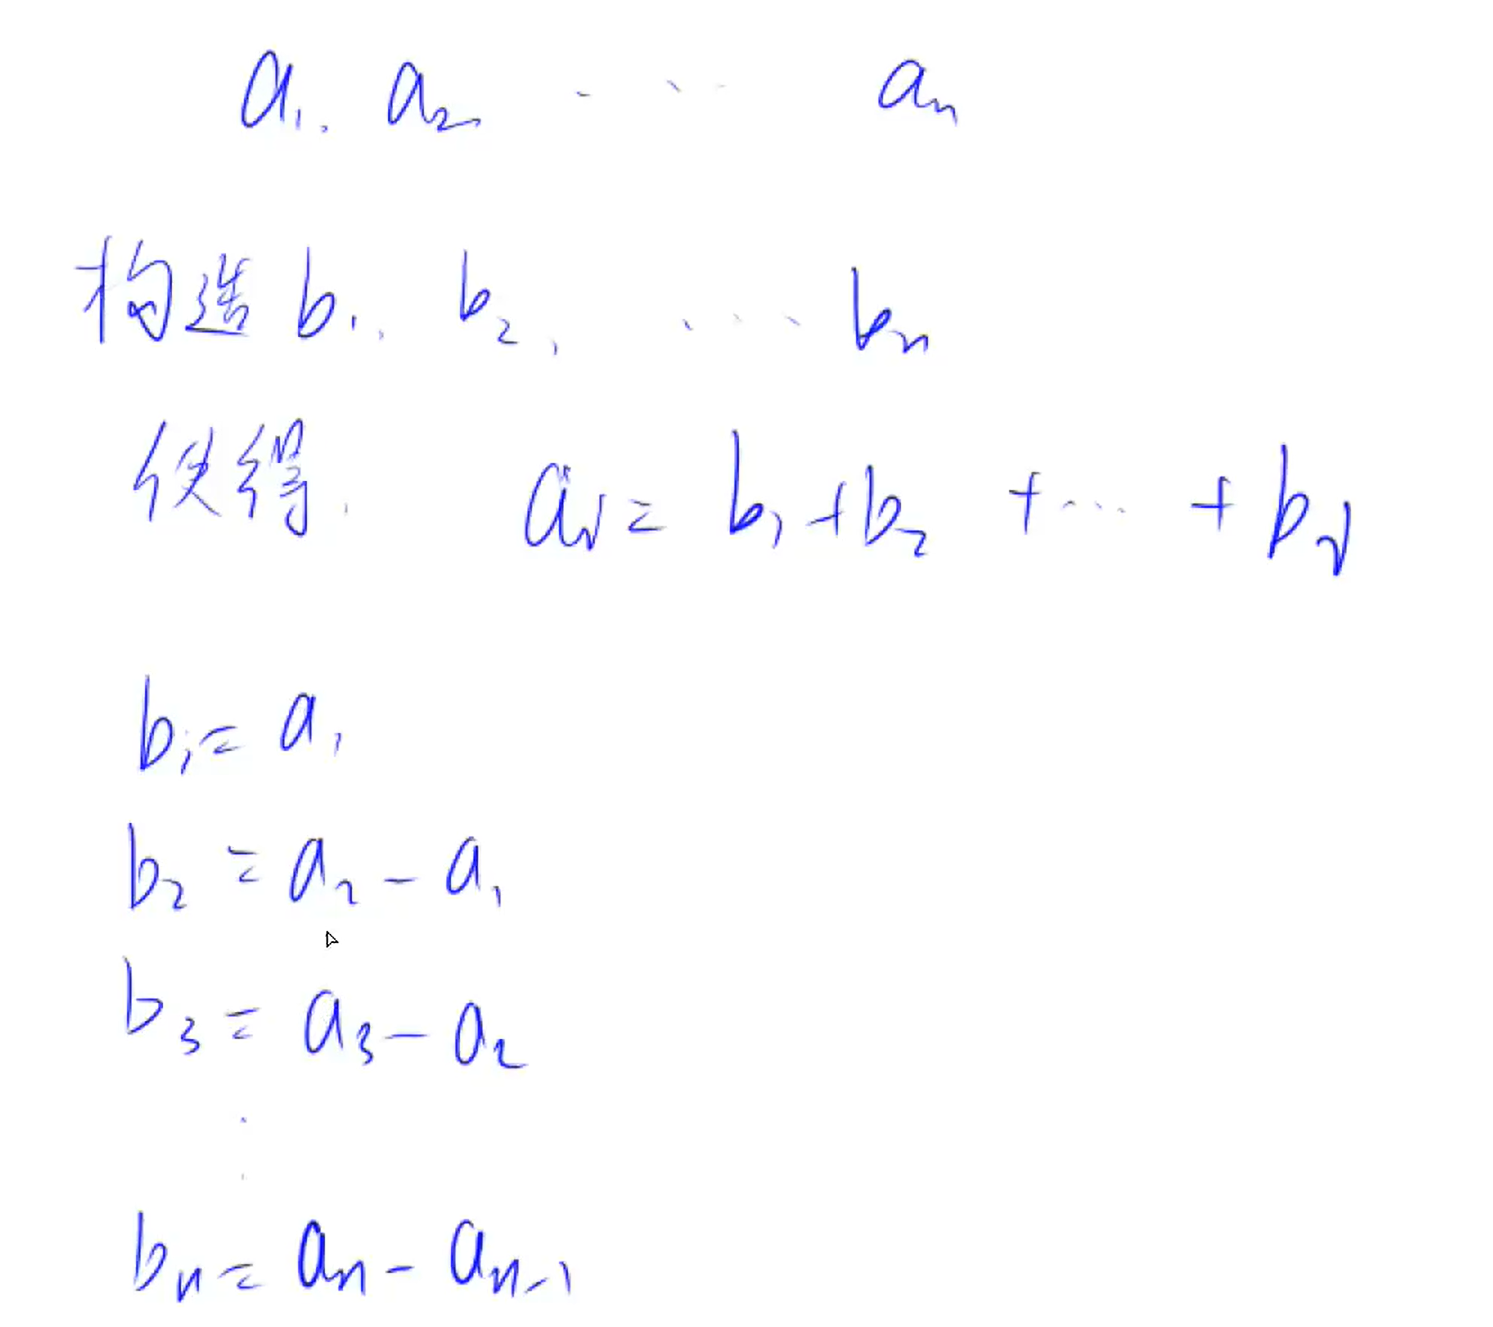 a₁, a₂ ...... aₙ
构造 b₁, b₂, ...... bₙ
使得, aᵢ = b₁ + b₂ + ... + bᵢ
b₁ = a₁
b₂ = a₂ - a₁
b₃ = a₃ - a₂
:
bₙ = aₙ - aₙ₋₁